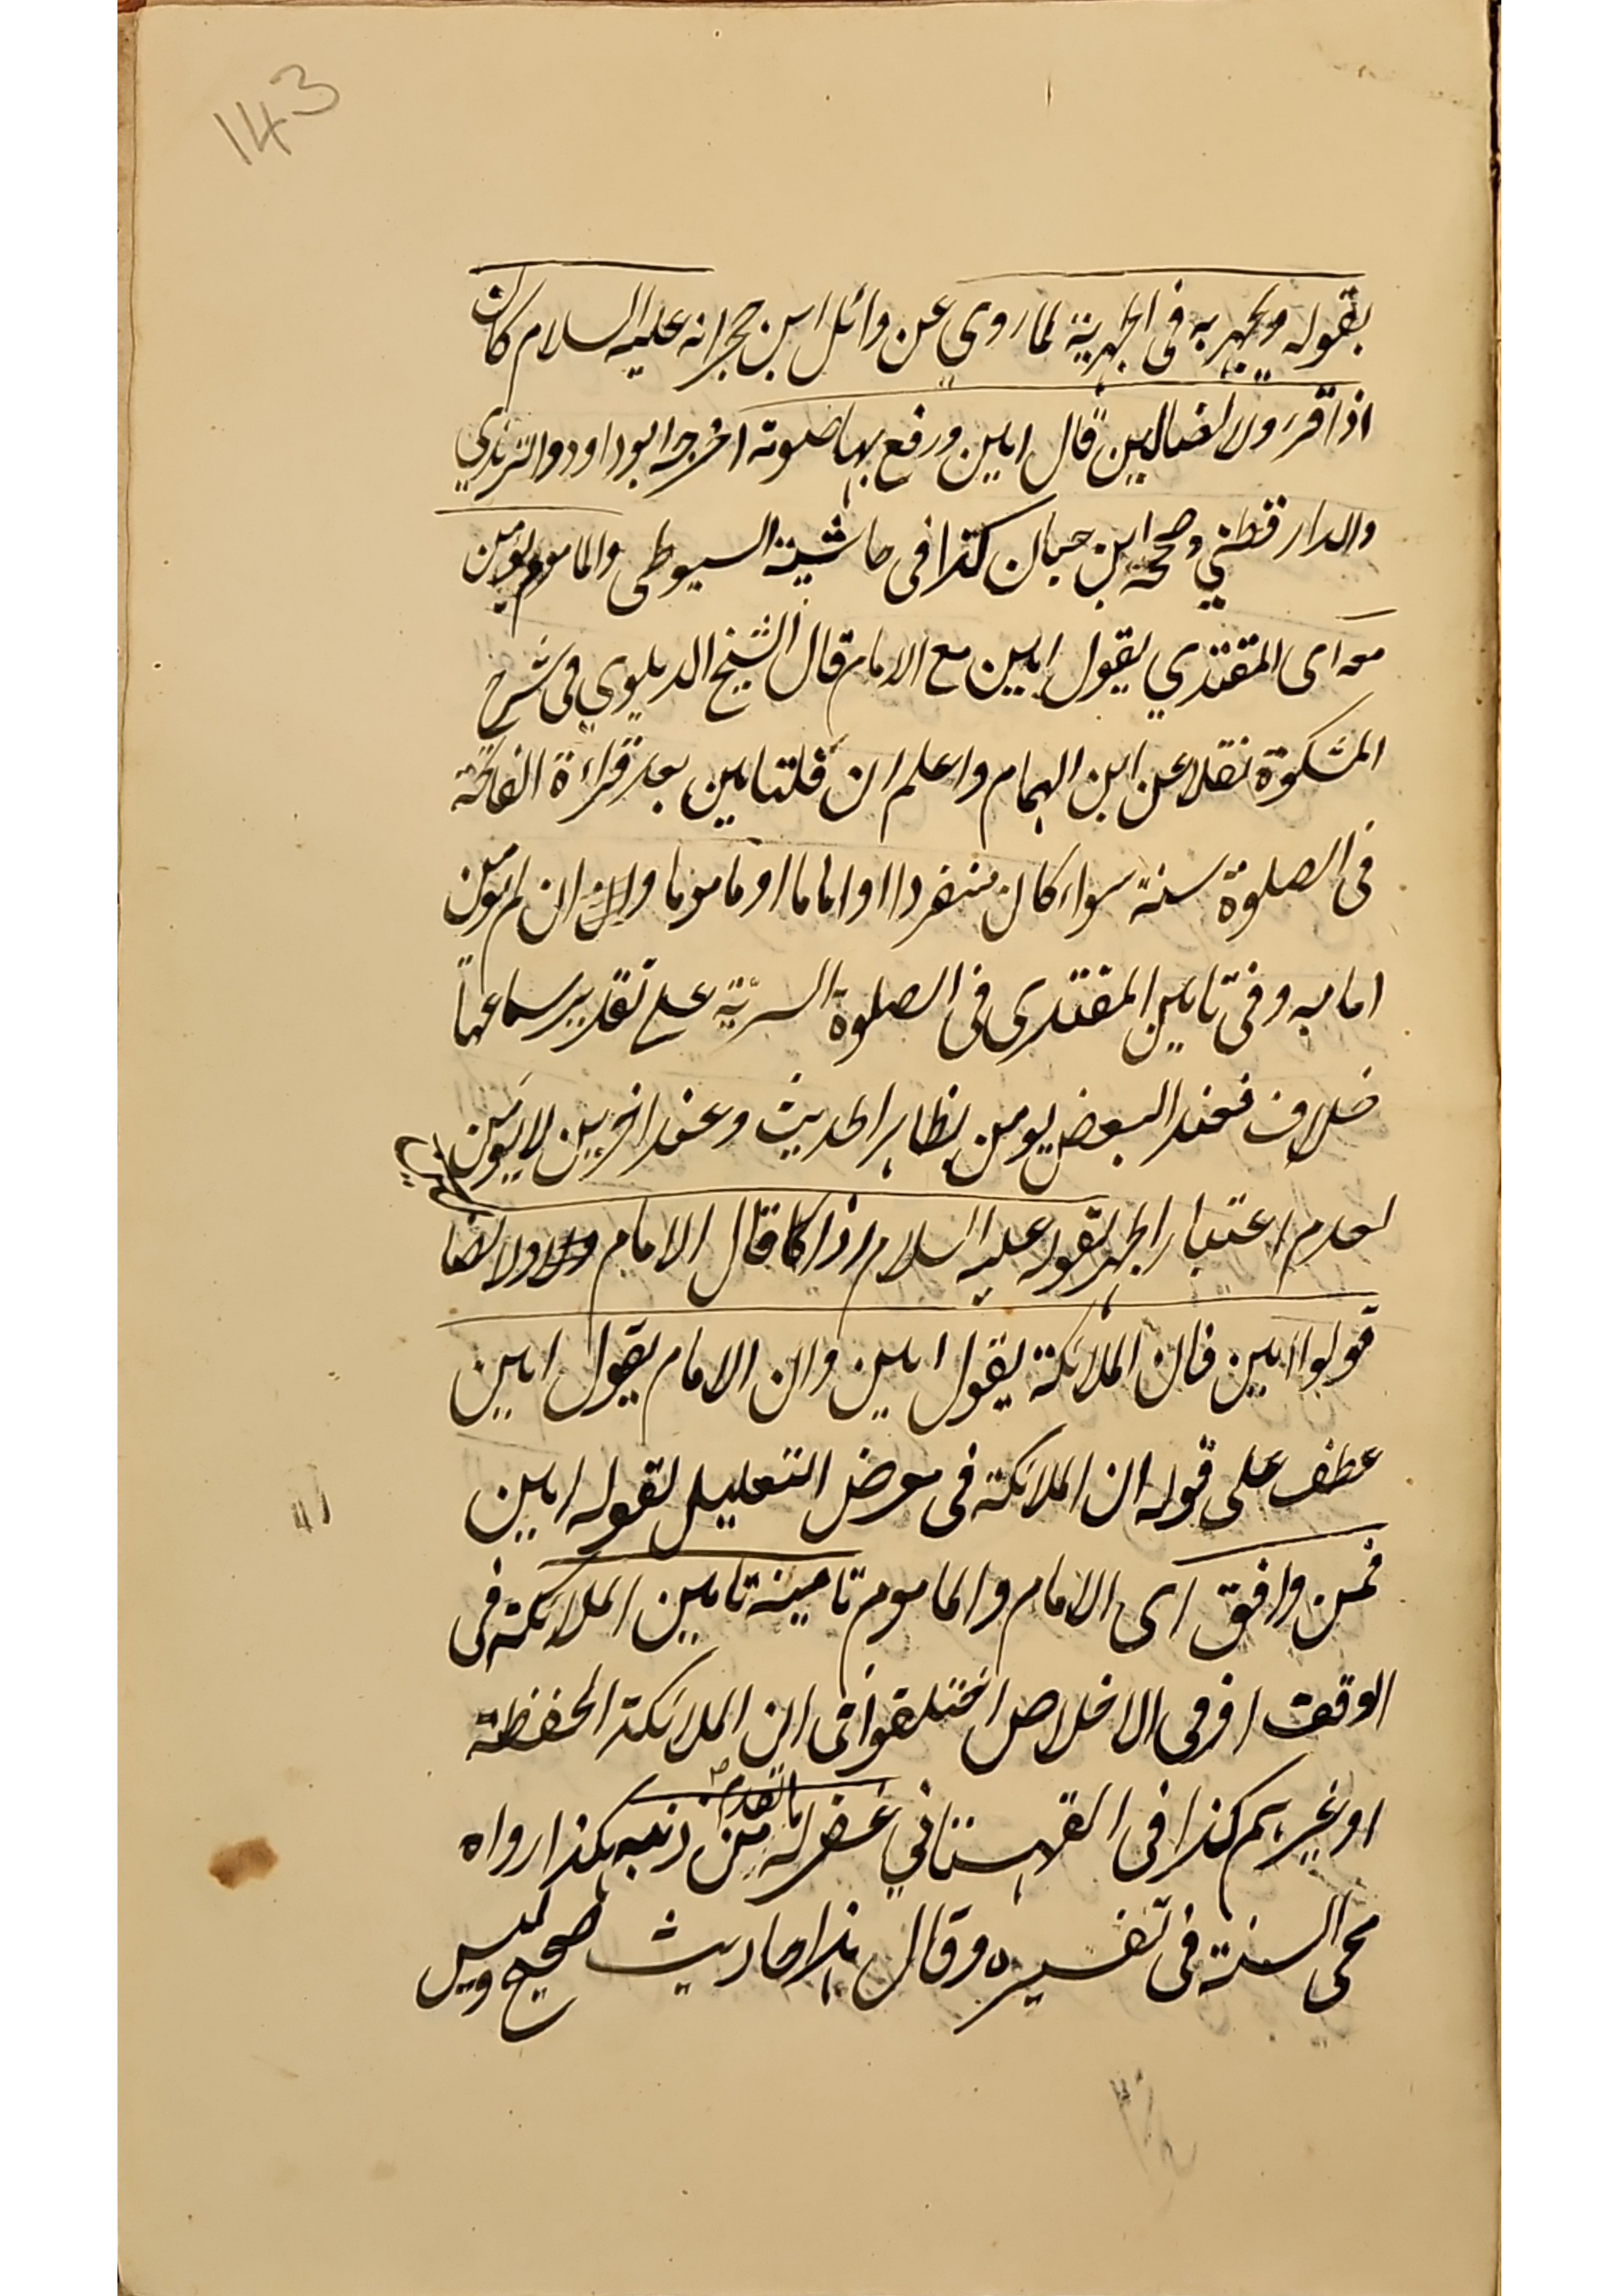 143
بقوله ويجهر به فى الجهرية لما روي عن وائل ابن حجر انه عليه السلام كان
اذا قرء ولا الضالين قال امين ورفع بها صوته اخرجه ابو داود والترمذي
والدار قطني وصححه ابن حبان كذا فى حاشية السيوطى والماموم يومن
معه اى المقتدي يقول امين مع الامام قال الشيخ الدهلوي فى شرح
المشكوة نقلا عن ابن الهمام واعلم ان قلت امين بعد قراءة الفاتحة
فى الصلوة سنة سواء كان منفردا او اماما او ماموما وان لم يومن
امامه وفى تامين المقتدى فى الصلوة السرية على تقدير سماعها
خلاف فعند البعض يومن بظاهر الحديث وعند اخرين لا يومن
لعدم اعتبار الجهر لقوله عليه السلام اذا قال الامام ولا الضالين
قولوا امين فان الملائكة يقول امين وان الامام يقول امين
عطف على قوله ان الملائكة فى معرض التعليل لقوله امين
فمن وافق اى الامام والماموم تامينه تامين الملائكة فى
الوقت او فى الاخلاص اختلفوا فى ان الملائكة الحفظة
او غيرهم كذا فى القهستاني غفر له ما تقدم من ذنبه هكذا رواه
محى السنة فى تفسيره وقال هذا حاديث صحيح وليس